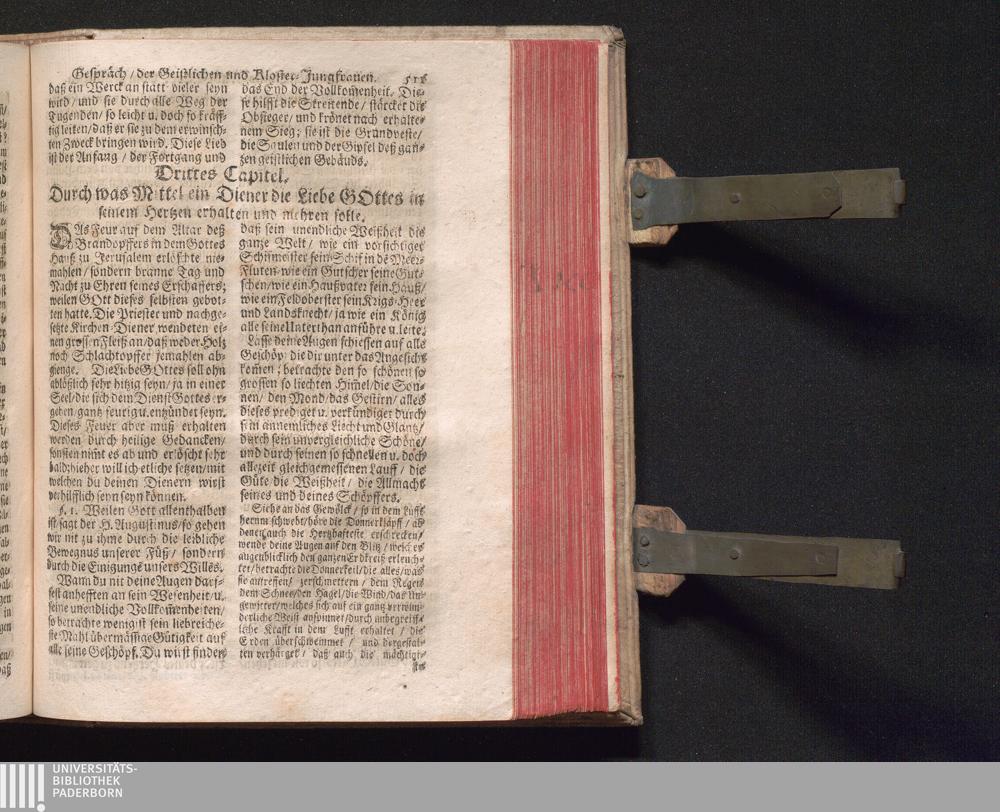 Gespräch / der Geistlichen und Kloster-Jungfrauen. 511
daß ein Werck an statt vieler seyn
wird / und sie durch alle Weg der
Tugenden / so leicht u. doch so kräff-
tig leiten / daß er sie zu dem erwünsch-
ten Zweck bringen wird. Diese Lieb
ist der Anfang / der Fortgang und
das End der Vollkom̃enheit. Die-
se hilfft die Streitende / stärcket die
Obsieger / und krönet nach erhalte-
nem Sieg; sie ist die Grundveste /
die Saulen und der Gipfel deß gan-
zen geistlichen Gebäuds.
Drittes Capitel.
Durch was Mittel ein Diener die Liebe GOttes in
seinem Hertzen erhalten und mehren solle.
DAs Feur auf dem Altar deß
Brandopffers in dem Gottes
Hauß zu Jerusalem erlöschte nie-
mahlen / sondern branne Tag und
Nacht zu Ehren seines Erschaffers;
weilen GOtt dieses selbsten gebot-
ten hatte. Die Priester und nachge-
setzte Kirchen-Diener wendeten ei-
nen grossen Fleiß an / daß weder Holz
noch Schlachtopffer jemahlen ab-
gienge. Die Liebe GOttes soll ohn
ablößlich sehr hitzig seyn / ja in einer
Seel / die sich dem Dienst Gottes er-
geben / gantz feurig u. entzündet seyn.
Dieses Feuer aber muß erhalten
werden durch heilige Gedancken /
sonsten nim̃t es ab und erlöscht sehr
bald: hieher will ich etliche setzen / mit
welchen du deinen Dienern wirst
verhilfflich seyn seyn können.
§. 1. Weilen Gott allenthalben
ist / sagt der H. Augustinus / so gehen
wir nit zu ihme durch die leibliche
Bewegnus unserer Füß / sondern
durch die Einigung unsers Willẽs.
Wann du nit deine Augen darf-
fest anhefften an sein Wesenheit / u.
seine unendliche Vollkom̃enheiten /
so betrachte wenigist sein liebreiche-
ste Mahl übermässige Gütigkeit auf
alle seine Geschöpf. Du wirst finden
daß sein unendliche Weißheit die
ganze Welt / wie ein vorsichtiger
Schifmeister sein Schif in dẽ Meer-
Fluten / wie ein Gutscher seine Gut-
schen / wie ein Haußvater sein Hauß /
wie ein Feldoberster sein Krigs-Heer
und Landsknecht / ja wie ein König
alle seine Unterthan anführe u. leite.
Lasse deine Augen schiessen auf alle
Geschöpf die dir unter das Angesicht
kom̃en; betrachte den so schönen so
grossen so liechten Him̃el / die Son-
nen / den Mond / das Gestirn / alles
dieses prediget u. verkündiget durch
sein annemliches Liecht und Glantz /
durch sein unvergleichliche Schöne /
und durch seinen so schnellen u. doch
allezeit gleichgemessenen Lauff / die
Güte die Weißheit / die Allmacht
seines und deines Schöpffers.
Siehe an das Gewölck / so in dem Lufft
herum schwebt / höre die Donnerkläpff / ab
denen auch die Hertzhafteste erschrecken /
wende deine Augen auf den Blitz / welcher
augenblicklich den ganzen Erdkreiß erleuch-
tet / betrachte die Donnerkeil / die alles / was
sie antreffen / zerschmettern / dem Regen
dem Schnee / den Hagel / die Wind / das Un-
gewitter / welches sich auf ein gantz verwun-
derliche Weiß anspinnet / durch unbegreiff-
liche Krafft in dem Lufft erhaltet / die
Erden überschwemmet / und dergestal-
ten verhärget / daß auch die mächtig-
ste
UNIVERSITÄTS-
BIBLIOTHEK
PADERBORN